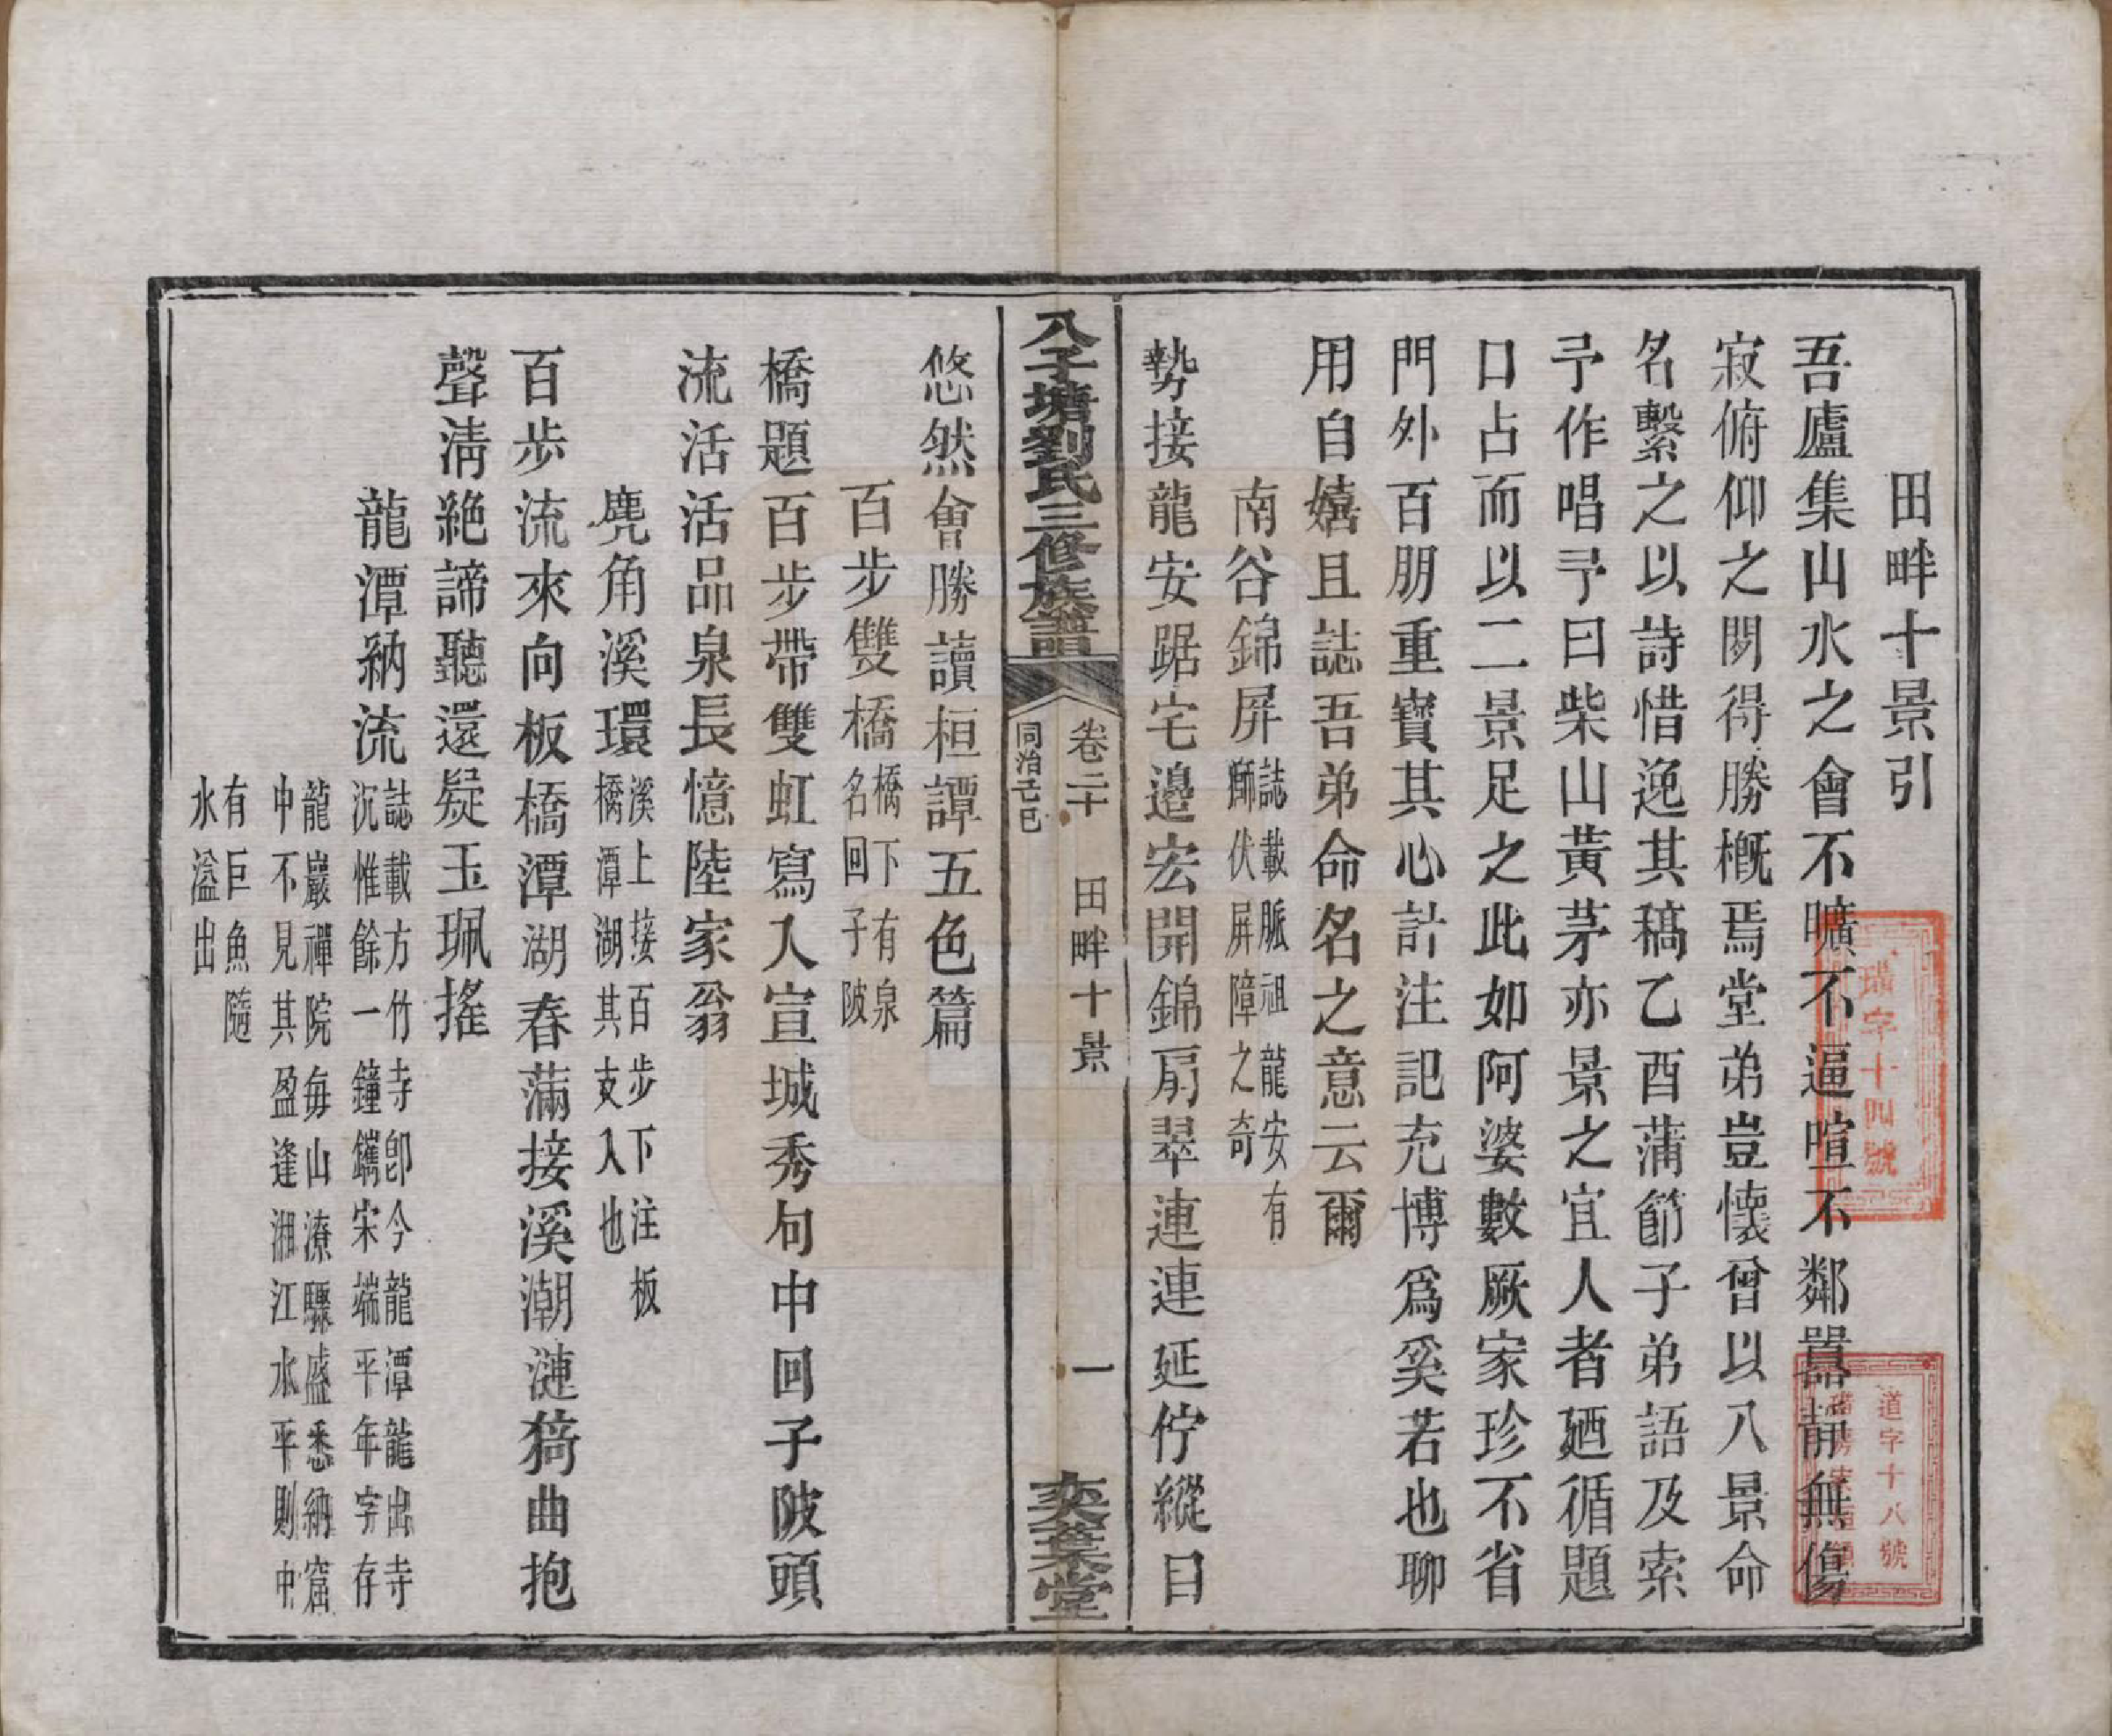 田畔十景引
吾廬集山水之會不曠不逼喧不鄰囂靜無傷
寂俯仰之閒得勝概焉堂弟豈懷曾以八景命
名繫之以詩惜逸其稿乙酉蒲節子弟語及索
予作唱予曰柴山黃茅亦景之宜人者廼循題
口占而以二景足之此如阿婆數厥家珍不省
門外百朋重寶其心計注記充博爲奚若也聊
用自嬉且誌吾弟命名之意云爾
南谷錦屏
誌載脈祖龍安有
獅伏屏障之奇
勢接龍安踞宅邊宏開錦扇翠連連延佇縱目
八子塘劉氏三修族譜
卷二十
田畔十景
一
同治己巳
奕葉堂
悠然會勝讀桓譚五色篇
百步雙橋
橋下有泉
名回子陂
橋題百步帶雙虹寫入宣城秀句中回子陂頭
流活活品泉長憶陸家翁
麂角溪環
溪上接百步下注板
橋潭湖其支入也
百步流來向板橋潭湖春滿接溪潮漣猗曲抱
聲淸絶諦聽還疑玉珮搖
龍潭納流
誌載方竹寺卽今龍潭龍出寺
沉惟餘一鐘鐫宋端平年字存
龍巖禪院毎山潦驟盛悉納窟
中不見其盈逢湘江水平則中
有巨魚隨
水溢出
瑞字十四號
道字十八號